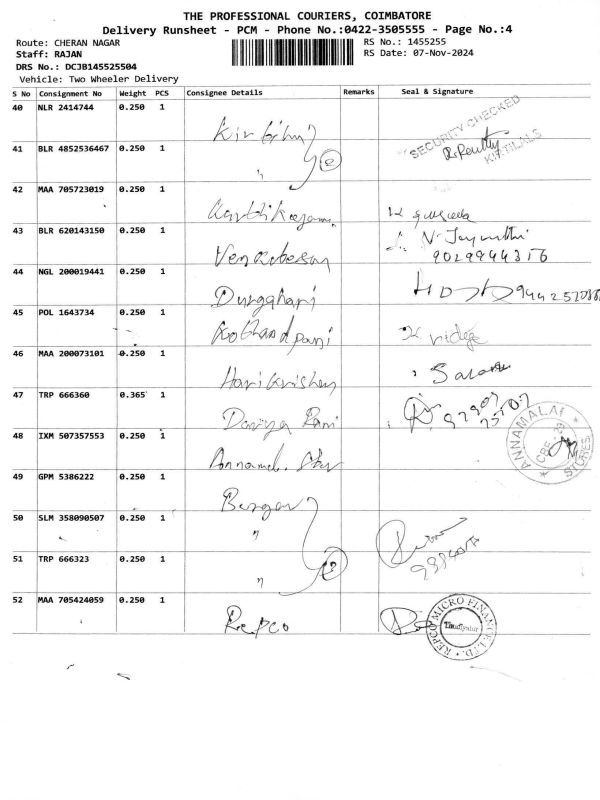 THE PROFESSIONAL COURIERS, COIMBATORE
Delivery Runsheet - PCM - Phone No.:0422-3505555 - Page No.:4
Route: CHERAN NAGAR RS No.: 1455255
Staff: RAJAN RS Date: 07-Nov-2024
DRS No.: DCJB145525504
Vehicle: Two Wheeler Delivery
S No Consignment No Weight PCS Consignee Details Remarks Seal & Signature
40 NLR 2414744 0.250 1
SECURITY CHECKED
KIRTILALS
41 BLR 4852536467 0.250 1 "
42 MAA 705723019 0.250 1
43 BLR 620143150 0.250 1 Venkatesan
9029944316
44 NGL 200019441 0.250 1 Durgahari
45 POL 1643734 0.250 1 Kothandpani
46 MAA 200073101 0.250 1 Harikrishan
47 TRP 666360 0.365 1
48 IXM 507357553 0.250 1
ANNAMALAI STORES
CBE - 29
49 GPM 5386222 0.250 1
50 SLM 358090507 0.250 1 "
51 TRP 666323 0.250 1 "
52 MAA 705424059 0.250 1 Repco
REPCO MICRO FINANCE LTD.
Thudiyalur